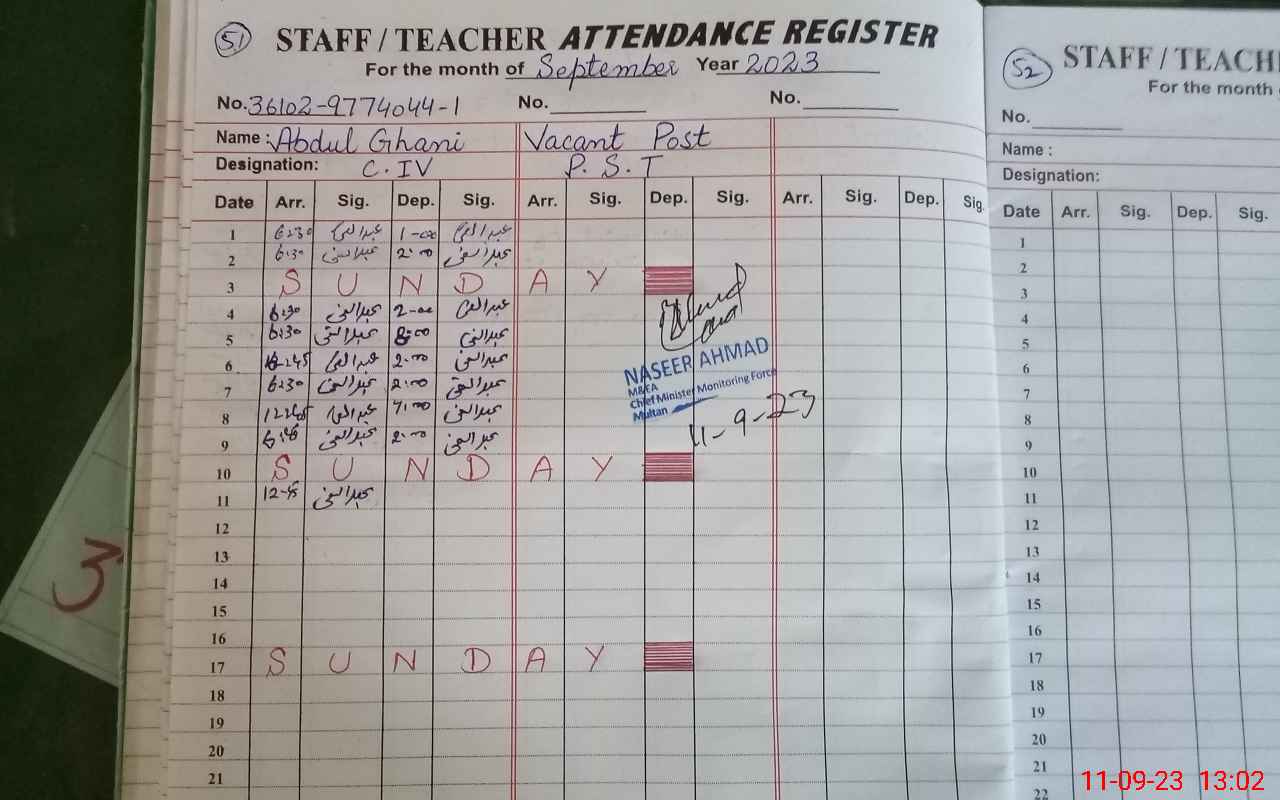 51 STAFF / TEACHER ATTENDANCE REGISTER
For the month of September Year 2023
No. 36102-9774044-1 No. No.
Name : Abdul Ghani Vacant Post
Designation: C.IV P.S.T
Date Arr. Sig. Dep. Sig. Arr. Sig. Dep. Sig. Arr. Sig. Dep. Sig.
1 6:30 عبدالغنی 1-00 عبدالغنی
2 6:30 عبدالغنی 2:00 عبدالغنی
3 S U N D A Y
4 6:30 عبدالغنی 2-00 عبدالغنی
5 6:30 عبدالغنی عبدالغنی
6 عبدالغنی 2:00 عبدالغنی
7 6:30 عبدالغنی 2:00 عبدالغنی
8 عبدالغنی 7:00 عبدالغنی
9 عبدالغنی 2:00 عبدالغنی
10 S U N D A Y
11 عبدالغنی
12
13
14
15
16
17 S U N D A Y
18
19
20
21
NASEER AHMAD
M&EA
Chief Minister Monitoring Force
Multan
11-9-23
52 STAFF / TEACH
For the month
No.
Name :
Designation:
Date Arr. Sig. Dep. Sig.
1
2
3
4
5
6
7
8
9
10
11
12
13
14
15
16
17
18
19
20
21
22
11-09-23 13:02
3